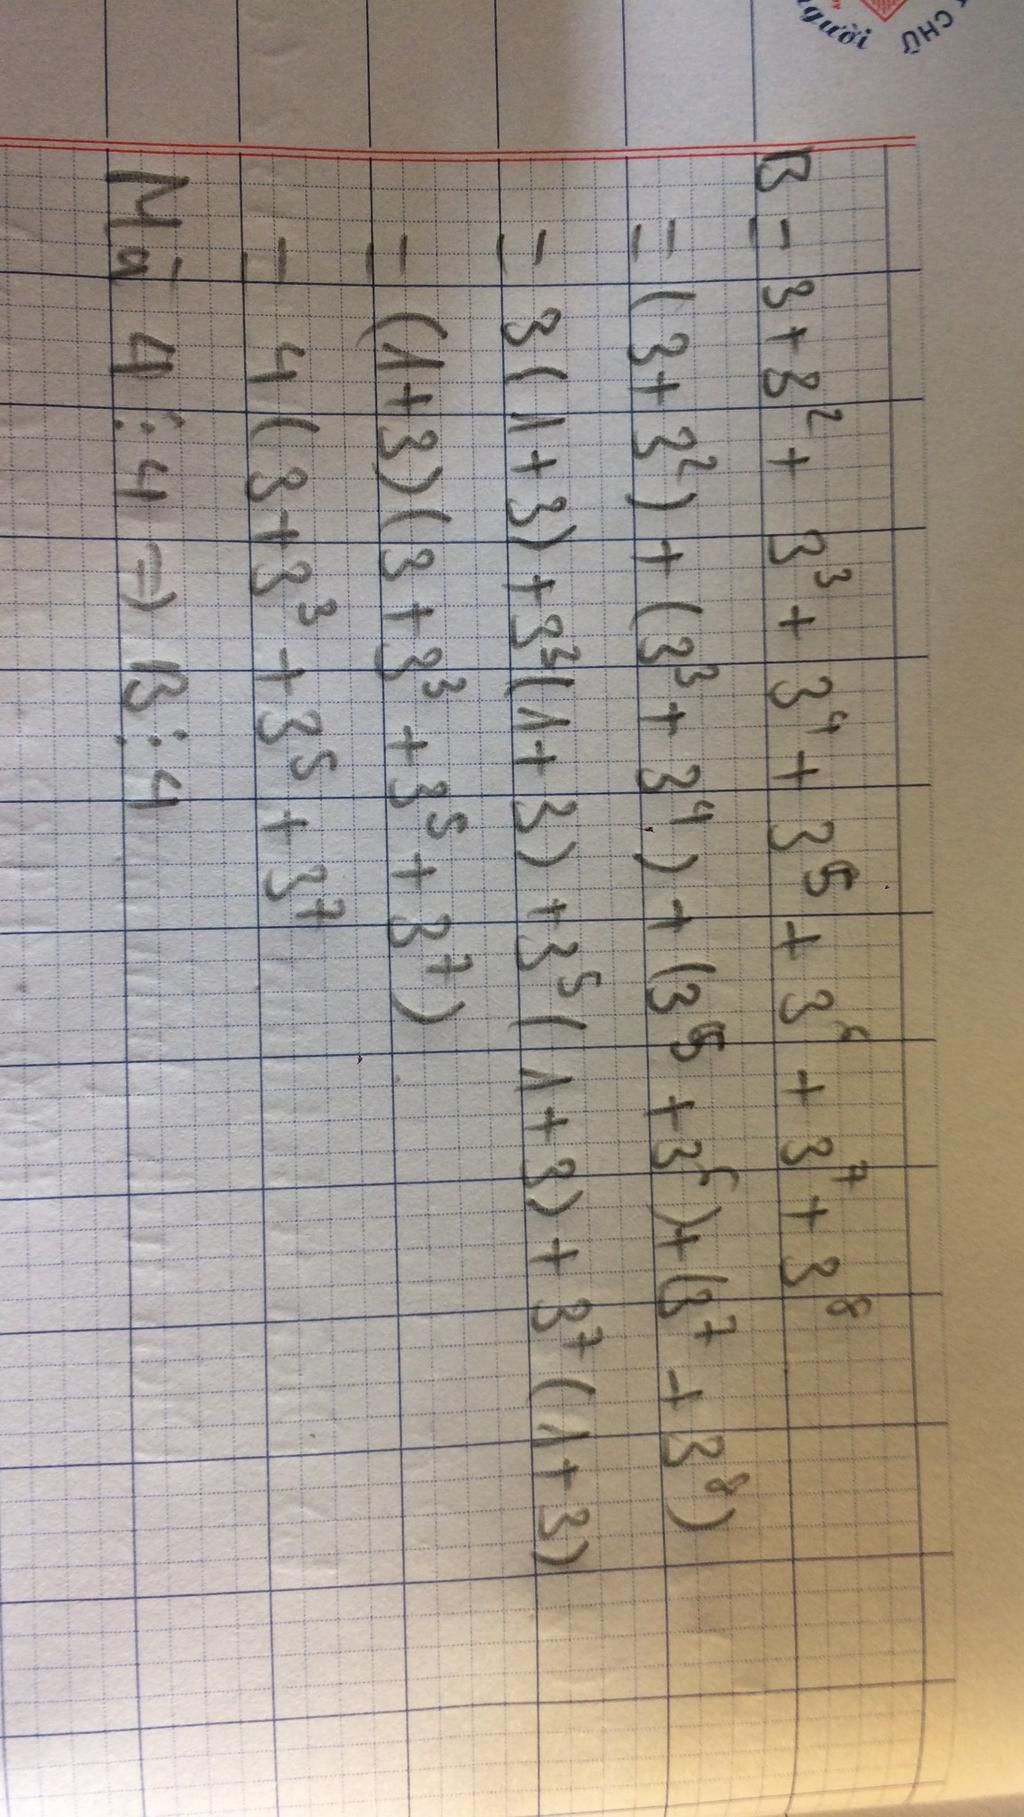 gười CHỮ
B = 3 + 3² + 3³ + 3⁴ + 3⁵ + 3⁶ + 3⁷ + 3⁸
= (3 + 3²) + (3³ + 3⁴) + (3⁵ + 3⁶) + (3⁷ + 3⁸)
= 3(1 + 3) + 3³(1 + 3) + 3⁵(1 + 3) + 3⁷(1 + 3)
= (1 + 3)(3 + 3³ + 3⁵ + 3⁷)
= 4(3 + 3³ + 3⁵ + 3⁷
Mà 4 ⋮ 4 → B ⋮ 4